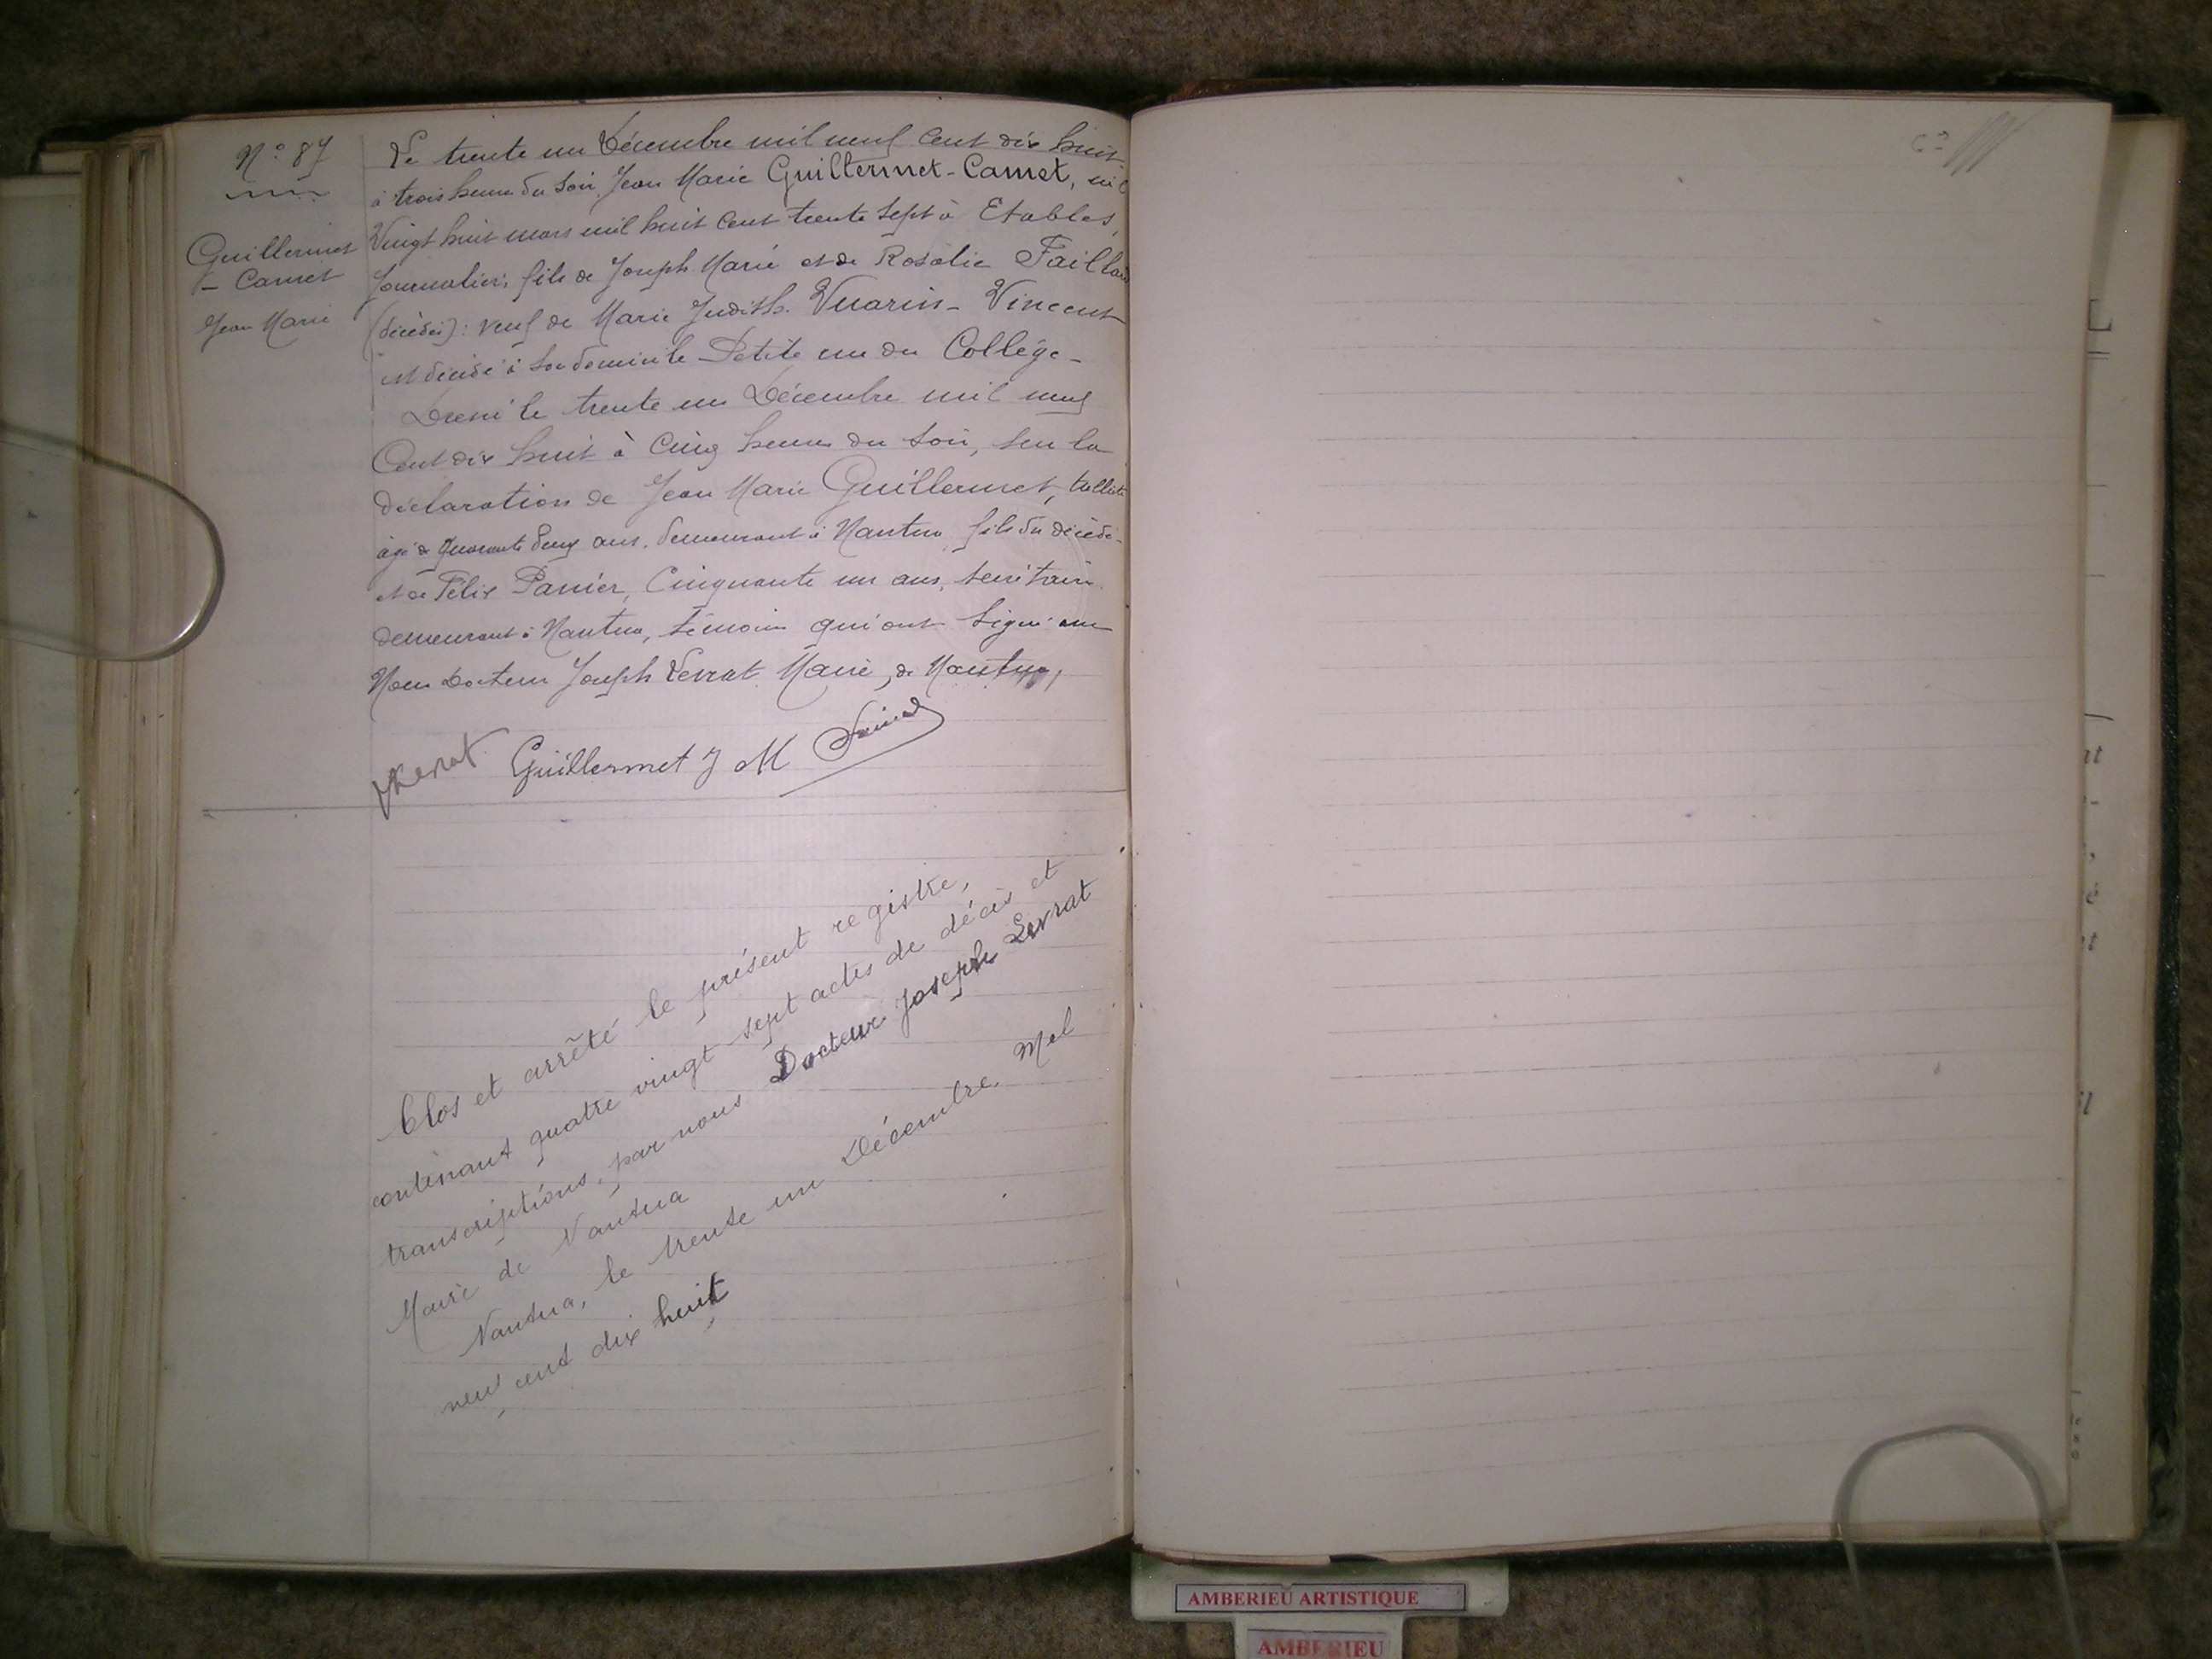 N° 87
Guillermet
- Camet
Jean Marie
Le trente un Décembre mil neuf Cent dix huit
à trois heures du soir, Jean Marie Guillermet-Camet, né le
Vingt huit mars mil huit Cent trente sept à Etables,
Journalier, fils de Joseph Marie et de Rosalie
(décédés): veuf de Marie Judith Vuarin - Vincent
est décédé à son domicile Petite rue du Collège -
Dressé le trente un Décembre mil neuf
Cent dix huit à Cinq heures du soir, sur la
déclaration de Jean Marie Guillermet,
âgé de quarante deux ans, demeurant à Nantua, fils du décédé -
et de Félix Panier, Cinquante un ans,
demeurant à Nantua, témoins qui ont signé avec
Nous Docteur Joseph Levrat Maire, de Nantua,
Levrat Guillermet J M
Clos et arrêté le présent registre,
contenant quatre vingt sept actes de décès et
transcriptions, par nous Docteur Joseph Levrat
Maire de Nantua
Nantua, le trente un Décembre Mil
neuf cent dix huit
AMBERIEU ARTISTIQUE
AMBERIEU